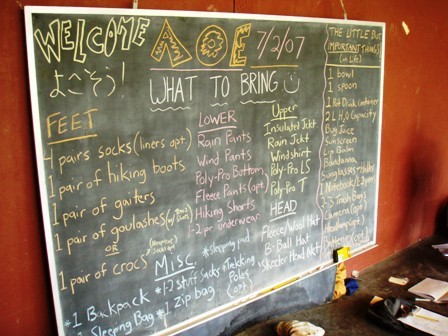 WELCOME
AOE 7/2/07
ようこそう!
WHAT TO BRING
FEET
4 pairs socks (liners opt.)
1 pair of hiking boots
1 pair of gaiters
1 pair of goulashes
OR
1 pair of crocs
LOWER
Rain Pants
Wind Pants
Poly-Pro Bottom
Fleece Pants (opt)
Hiking Shorts
1-2 pr underwear
Upper
Insulated Jckt
Rain Jckt
Windshirt
Poly-pro LS
Poly-pro T
HEAD
Fleece/Wool Hat
B-Ball Hat
Skeeter Head Net
Misc.
*1 Backpack
*1 Sleeping Bag
*sleeping pad
*1-2 Stuff Sacks
*1 Zip bag
*Trekking
Poles
(opt)
THE LITTLE But
IMPORTANT THINGS
(in Life)
1 bowl
1 spoon
1 Hot Drink container
2 L H2O Capacity
Bug Juice
Sunscreen
Lip Balm
Bandanna
Sunglasses
1 Notebook
2-3 Trash Bags
Camera (opt)
Headlamp (opt)